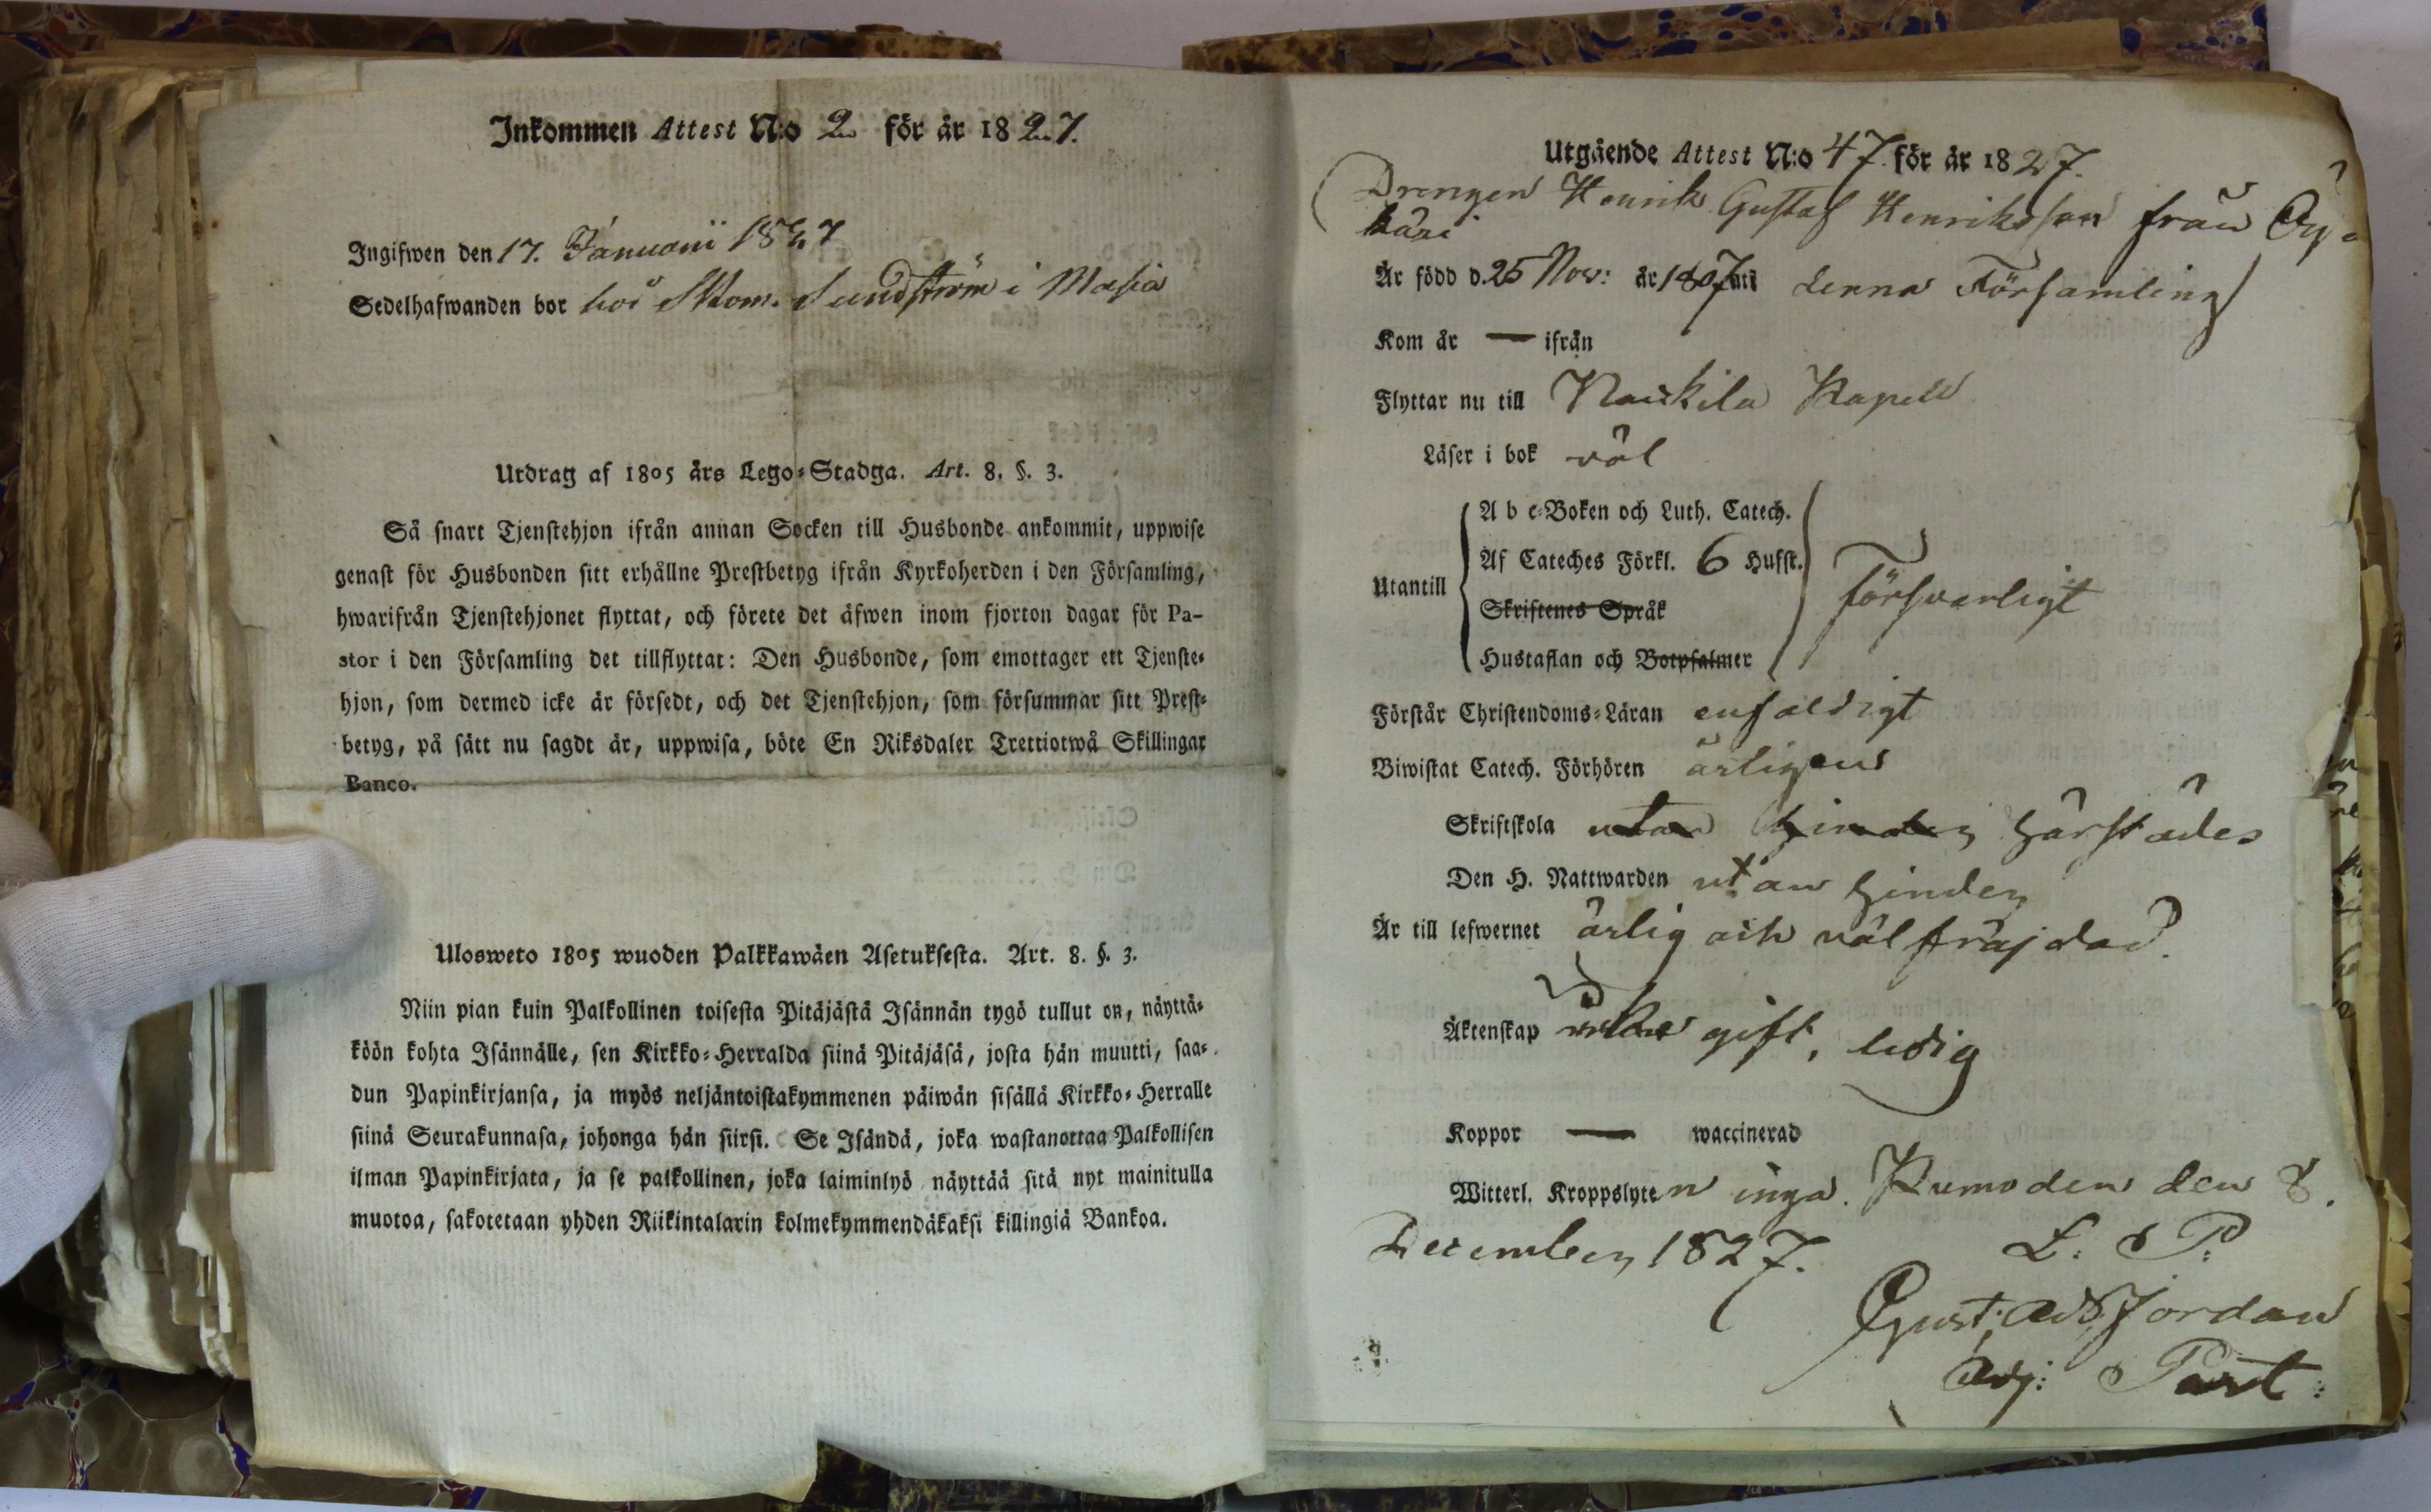 Inkommen Attest N:o 2 för år 1827.
Ingifwen den 17. Januarii 1827
Sedelhafwanden bor hos Skom. Sundström i Masia
Utdrag af 1805 års Lego-Stadga. Art. 8. §. 3.
Så snart Tjenstehjon ifrån annan Socken till Husbonde ankommit, uppwise
genast för Husbonden sitt erhållne Prestbetyg ifrån Kyrkoherden i den Församling,
hwarifrån Tjenstehjonet flyttat, och förete det äfwen inom fjorton dagar för Pa-
stor i den Församling det tillflyttat: Den Husbonde, som emottager ett Tjenste-
hjon, som dermed icke är försedt, och det Tjenstehjon, som försummar sitt Prest-
betyg, på sätt nu sagdt är, uppwisa, böte En Riksdaler Trettiotwå Skillingar
Banco.
Ulosweto 1805 wuoden Palkkawäen Asetuksesta. Art. 8. §. 3.
Niin pian kuin Palkollinen toisesta Pitäjästä Isännän tygö tullut on, näyttä-
köön kohta Isännälle, sen Kirkko-Herralda siinä Pitäjäsä, josta hän muutti, saa-
dun Papinkirjansa, ja myös neljäntoistakymmenen päiwän sisällä Kirkko-Herralle
siinä Seurakunnasa, johonga hän siirsi. Se Isändä, joka wastanottaa Palkollisen
ilman Papinkirjata, ja se palkollinen, joka laiminlyö näyttää sitä nyt mainitulla
muotoa, sakotetaan yhden Riikintalarin kolmekymmendäkaksi killingiä Bankoa.
Utgående Attest N:o 47 för år 1827.
Drengen Henrik Gustaf Henriksson från Öy-
käri
Är född d. 25 Nov: år 1807 uti denna Församling
Kom år — ifrån
Flyttar nu till Nackila Kapell
Läser i bok väl
A b c-Boken och Luth. Catech.
Af Cateches Förkl. 6 Husst.
Utantill
Skriftenes Språk
Försvarligt
Hustaflan och Botpsalmer
Förstår Christendoms-Läran enfaldigt
Biwistat Catech. Förhören årligen
Skriftskola utan hinder härstädes
Den H. Nattwarden utan hinder
Är till lefwernet ärlig och väl fräjdad.
Äktenskap gift, ledig
Koppor — waccinerad
Witterl. Kroppslyten inga. Kumo den 8.
December 1827. L. S. P:
Gust: Ad: Fjordan
Adj: Past: